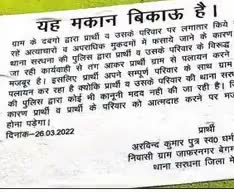 यह मकान बिकाऊ है।
ग्राम के दबंगो द्वारा प्रार्थी व उसके परिवार पर लगातार किये
रहे अत्याचारो व अपराधिक मुकदमो में फसाये जाने के कारण
थाना सरधना की पुलिस द्वारा प्रार्थी व उसके परिवार के विरूद्ध
जा रही कार्यवाही से तंग आकर प्रार्थी ग्राम से पलायन करने
मजबूर है। इसलिए प्रार्थी अपने सम्पूर्ण परिवार के साथ ग्राम
पलायन कर रहा है क्योंकि प्रार्थी व उसके परिवार की थाना सरध
की पुलिस द्वारा कोई भी कानूनी मदद नही की जा रही है। जि
कारण प्रार्थी व प्रार्थी के परिवार को आत्मदाह करने पर मज
होना पड़ेगा।
दिनांक-26.03.2022
प्रार्थी
अरविन्द कुमार पुत्र स्व0 धर्म
निवासी ग्राम जाफरनगर बेगम
थाना सरधना जिला मे